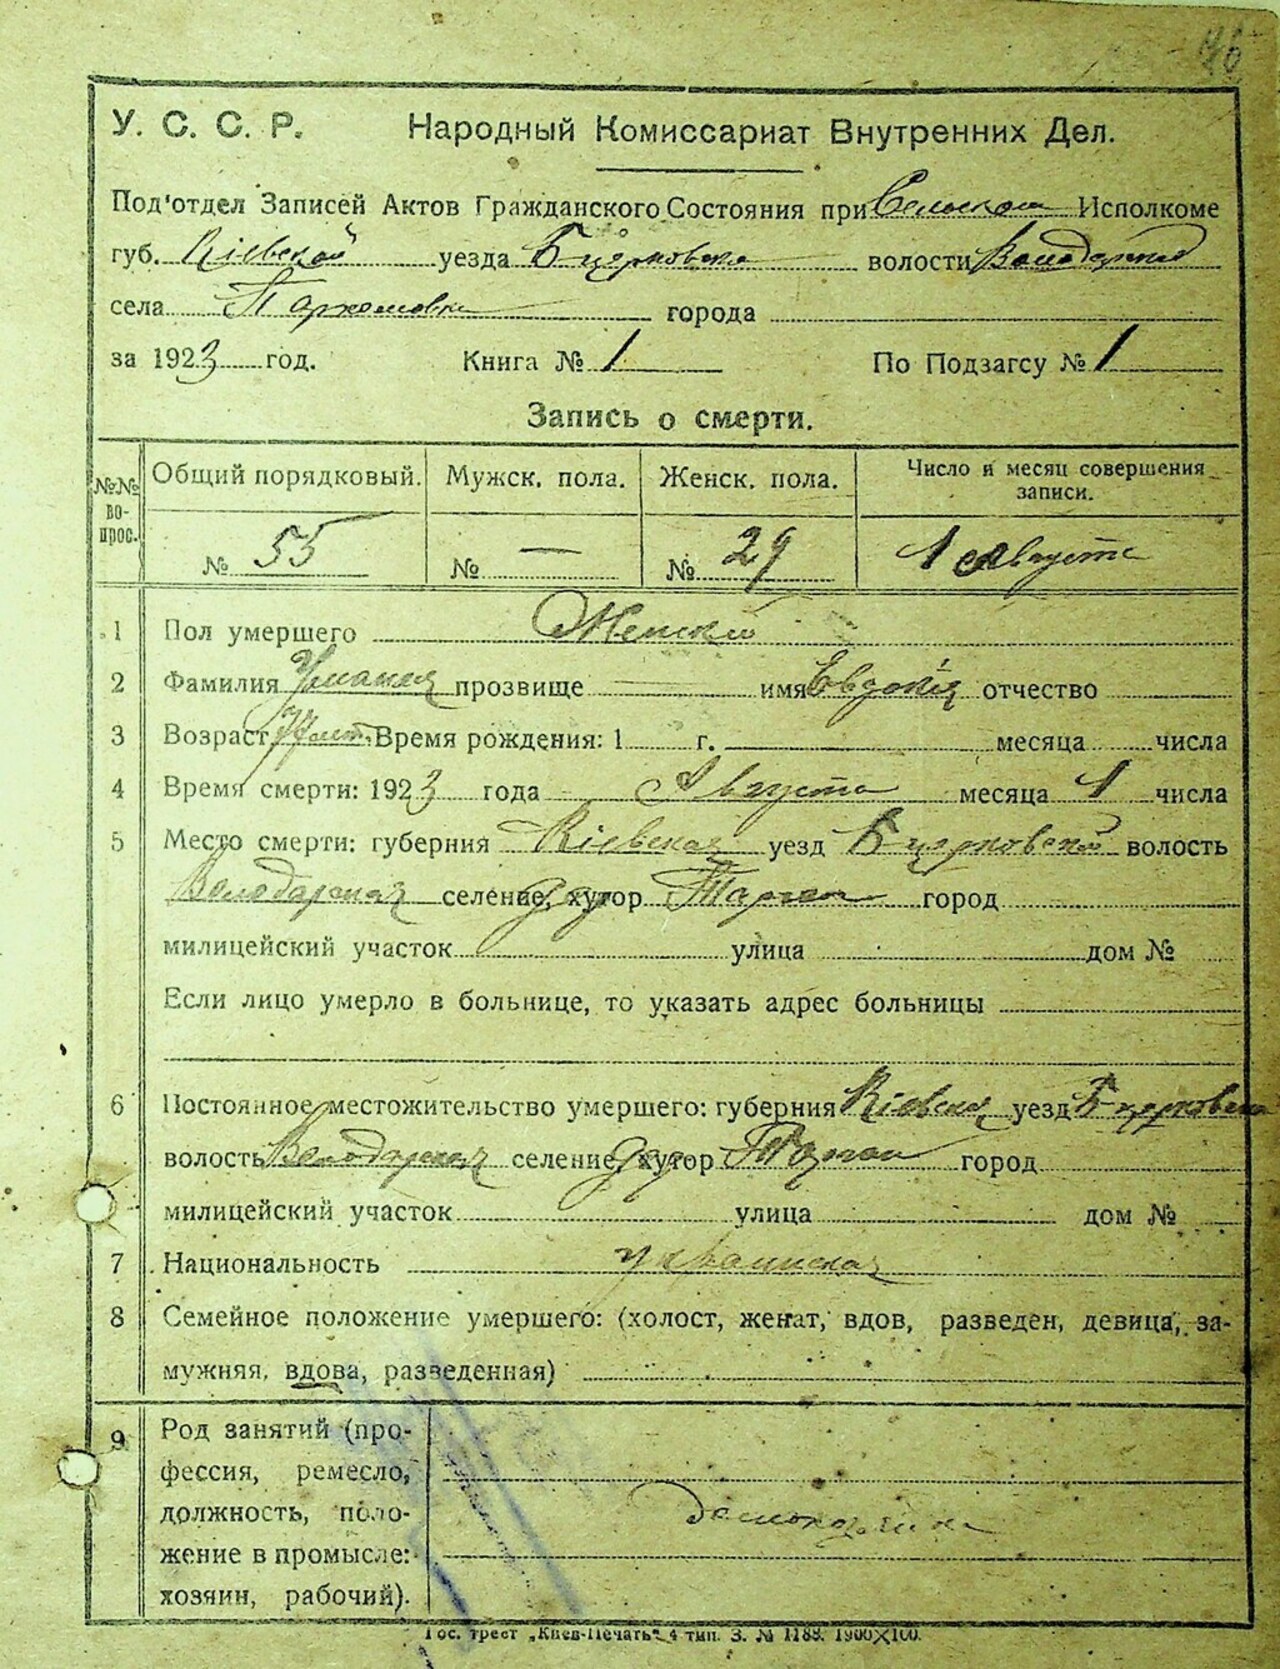 46
У. С. С. Р. Народный Комиссариат Внутренних Дел.
Под'отдел Записей Актов Гражданского Состояния при Сельском Исполкоме
губ. Кіевской уезда Б церковска волости Володарской
села Пархомовка города
за 1923 год. Книга № 1 По Подзагсу № 1
Запись о смерти.
№№ вопрос. Общий порядковый. Мужск. пола. Женск. пола. Число и месяц совершения записи.
№ 55 № — № 29 1 Августа
1 Пол умершего Женский
2 Фамилия прозвище — имя Евдокія отчество
3 Возраст лет. Время рождения: 1 г. месяца числа
4 Время смерти: 1923 года Августа месяца 1 числа
5 Место смерти: губерния Кіевская уезд Б церковской волость
Володарская селение, хутор Пархом город
милицейский участок улица дом №
Если лицо умерло в больнице, то указать адрес больницы
6 Постоянное местожительство умершего: губерния Кіевская уезд Б церковска
волость Володарская селение, хутор Пархом город
милицейский участок улица дом №
7 Национальность украинская
8 Семейное положение умершего: (холост, женат, вдов, разведен, девица, за-
мужняя, вдова, разведенная)
9 Род занятий (про-
фессия, ремесло,
должность, поло- домохазяйка
жение в промысле:
хозяин, рабочий).
Гос. трест „Киев-Печать" 4 тип. З. № 1188. 1900×100.